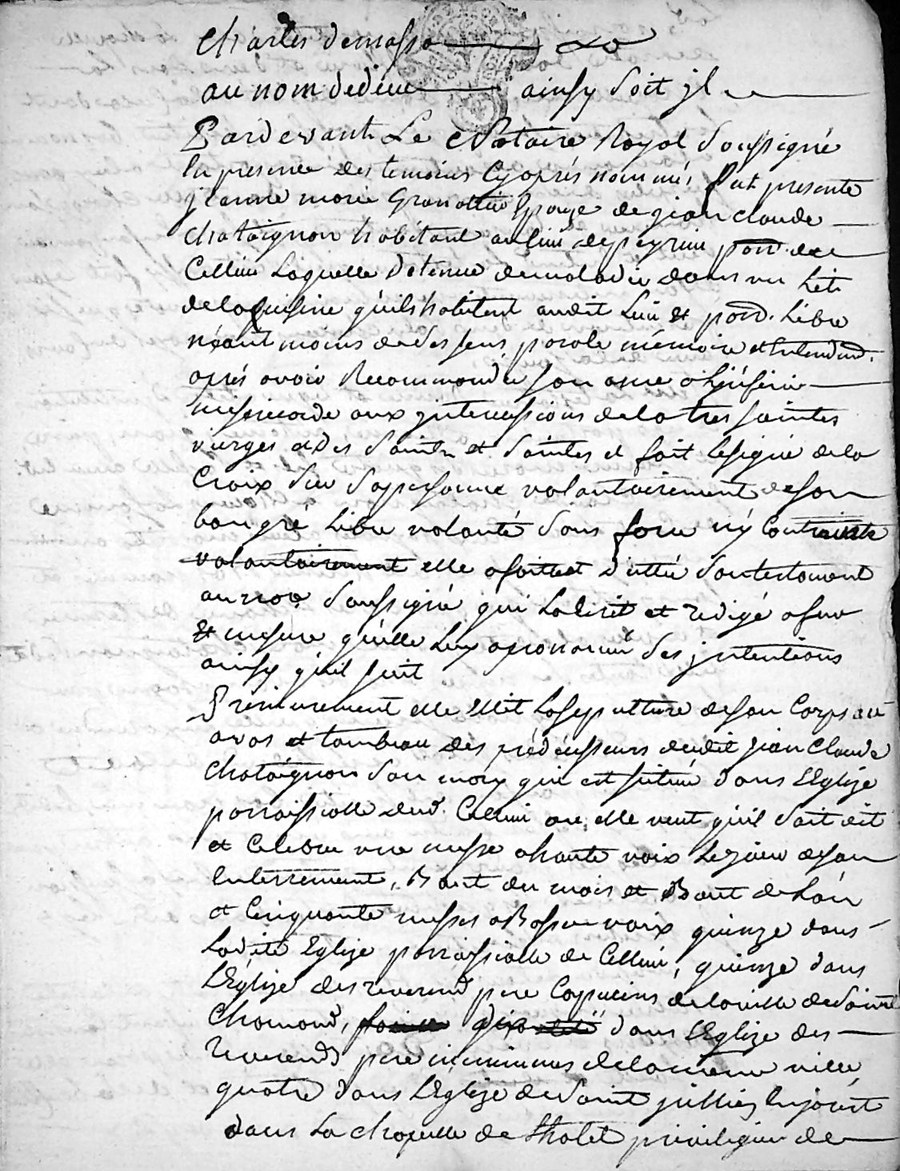 Charles demasso
au nom de dieu ainsy soit jl
Pardevant Le Notaire Royal Soussigné
En presence des temoins Cyaprés nommés, fut presente
jeanne marie Epouze de jean claude
chataignon habitant au lieu de peyrieu parr. de
Cellieu Laquelle detenue de maladie dans un Lit
de la Cuisine qu'ils habitent audit Lieu et parr. Libre
néant moins de Ses Sens parole mémoire et Entendmt.
aprés avoir Recommandé Son ame a L'infinie
misericorde aux yntercessions de la tres Sainte
vierge et des Saints et Saintes et fait Le Signe de la
Croix Sur Sa personne volontairement de Son
bon gré Libre volonté Sans force ny Contrainte
volontairement elle a fait et dicté Son testament
au nore Soussigné qui La Ecrit et redigé a fur
et mesure qu'elle Luy a prononcé Ses jntentions
ainsy qu'il Suit
Premierement elle Elit La Sepulture de Son Corps au
vas et tombeau des prédécesseurs dudit jean Claude
Chataignon Son mary qui est Situé dans L'Eglize
parroissialle dud. Cellieu ou elle veut qu'il Soit dit
et Celebré une messe a haute voix Le jour de Son
Enterrement, Bout du mois et Bout de L'an
et Cinquante messes a Basse voix quinze dans
Ladite Eglize parroissialle de Cellieu, quinze dans
L'Eglize des reverends pere Capucins de la ville de Saint
Chamond, dix dans L'Eglize des
reverends pere minimes de la meme ville
quatre dans L'Eglize de Saint jullien En jarêt
dans La chapelle de L'hotel privilegiée de